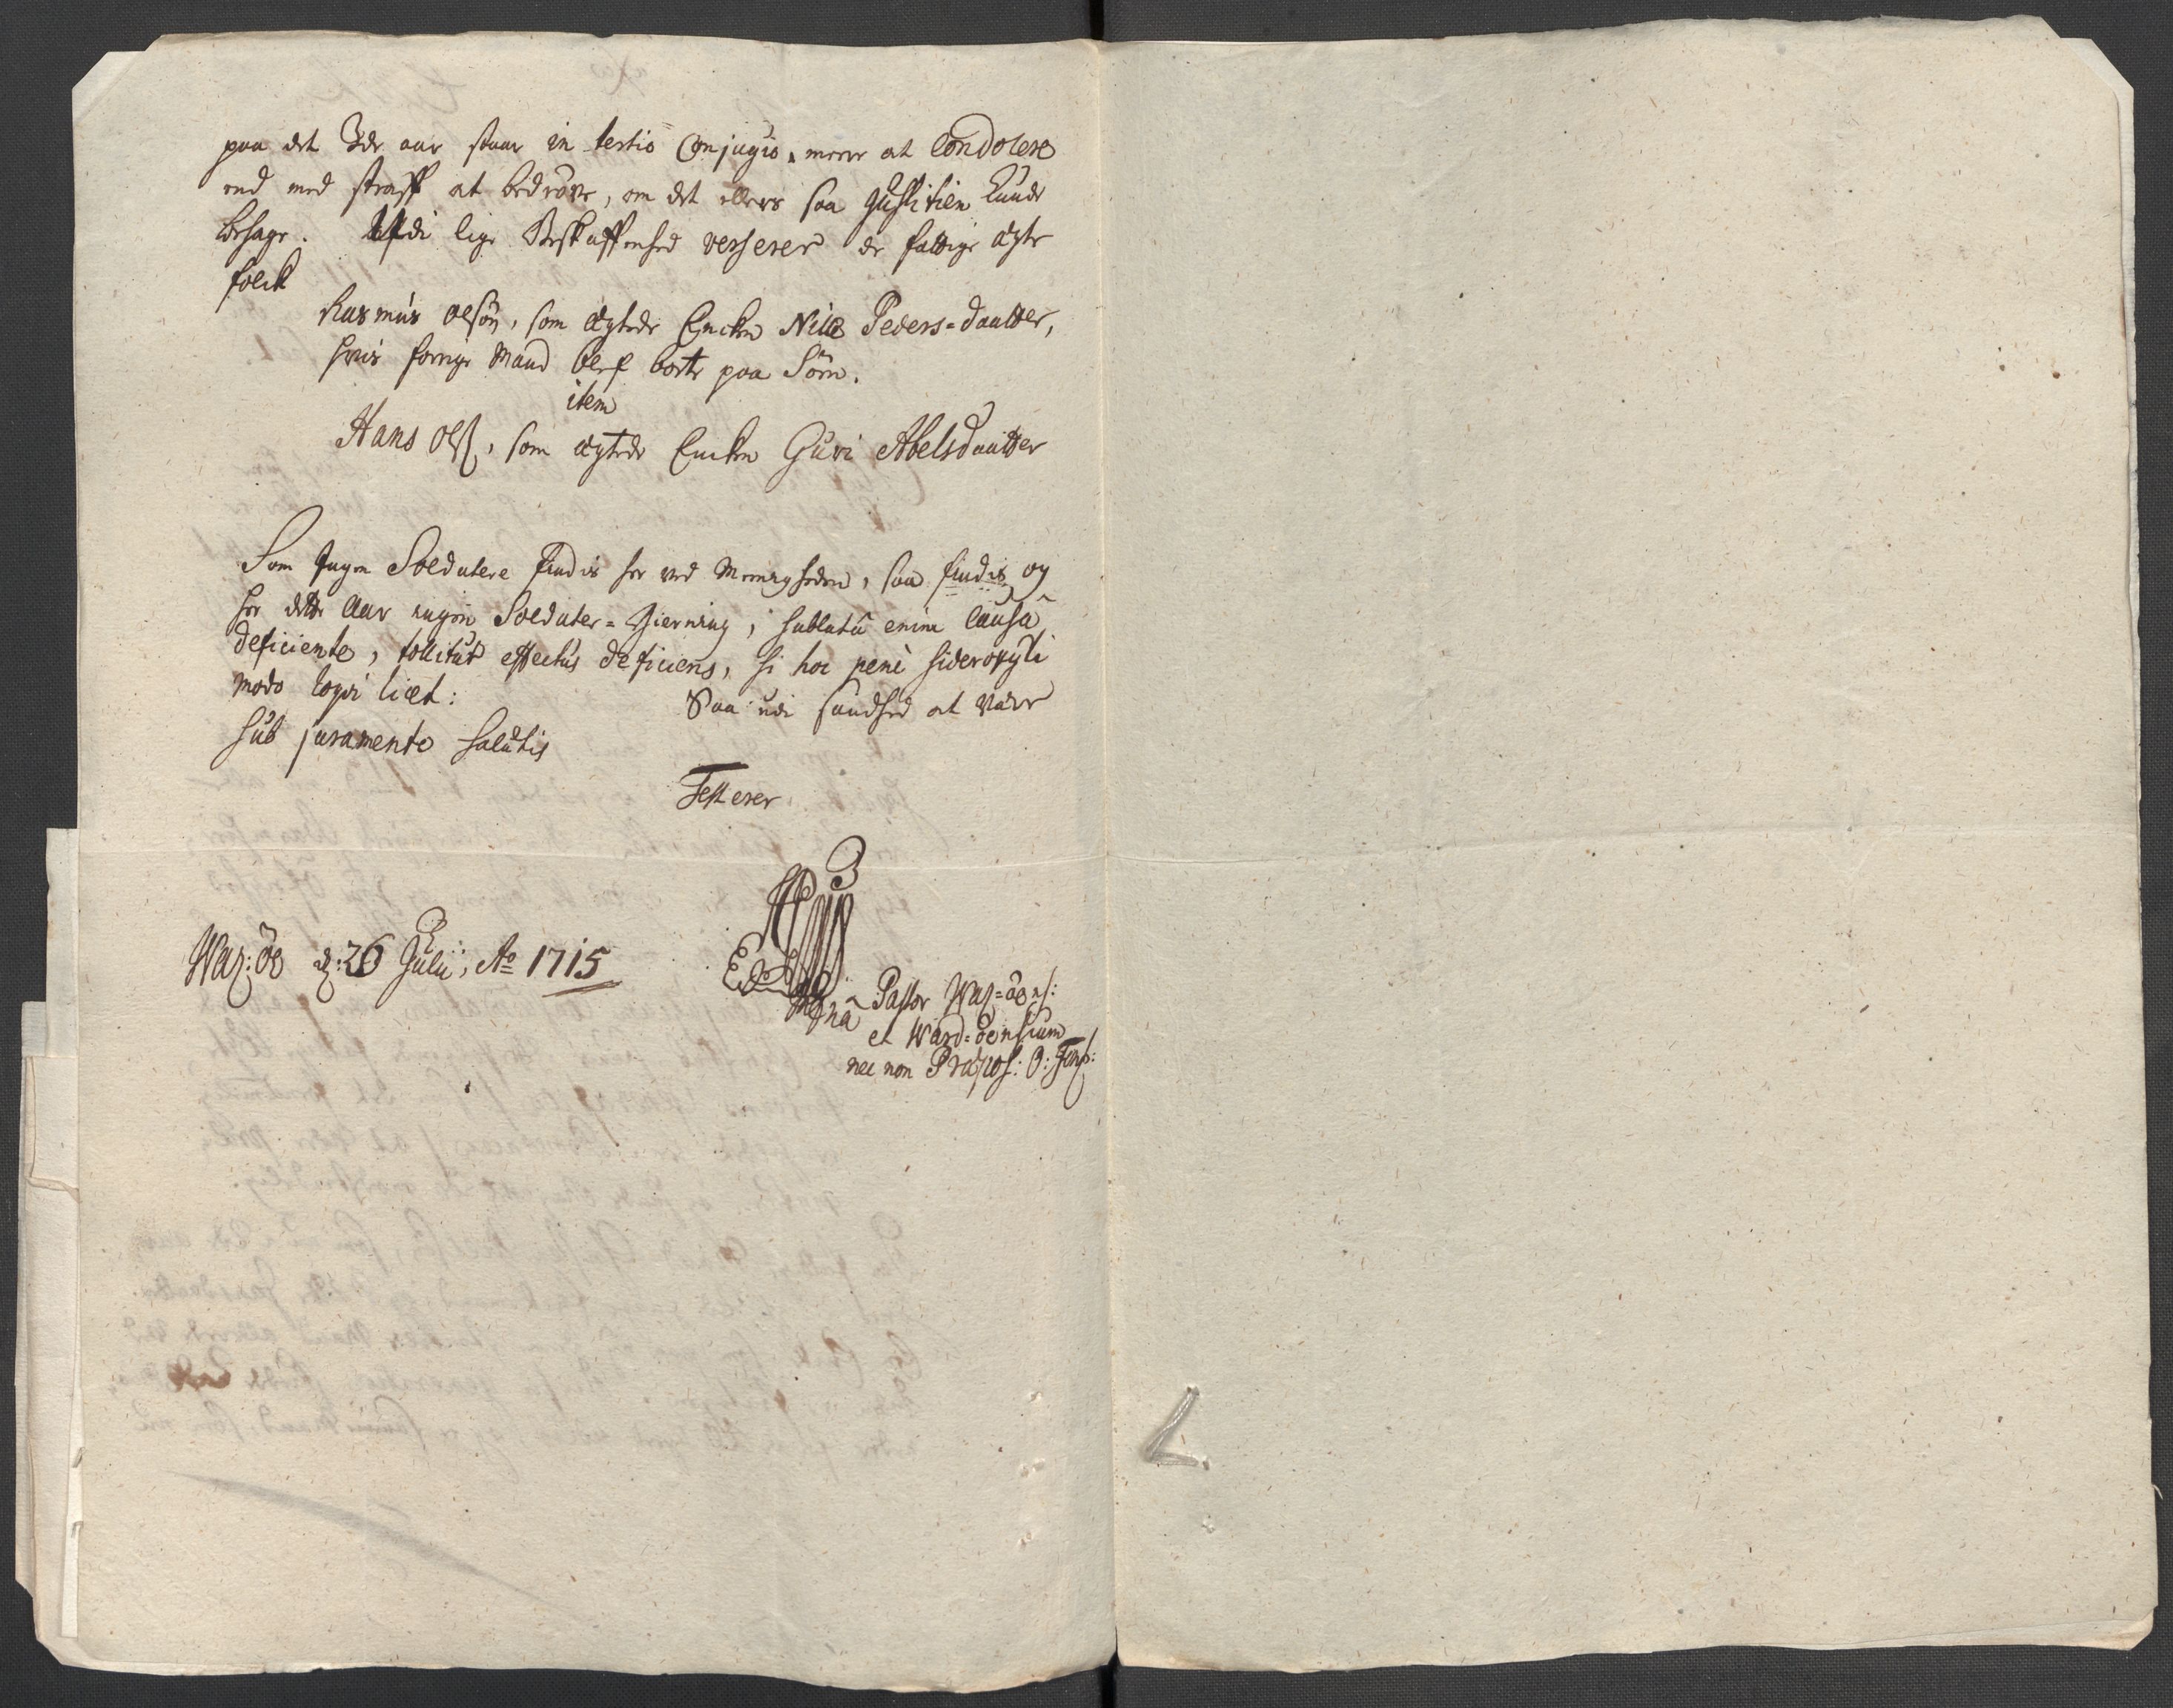 paa det 3de aar staar in tertio Conjugio, meere at Condolere
end med straff at bedröve, om det ellers saa Justitien kunde
behage. Udi lige Beskaffenhed verserer de fattige ægte
folck
Rasmus olsön, som ægtede Encken Nille Peders-daatter,
hvis forrige Mand blef borte paa Söen.
item
Hans Ols, som ægtede Encken Guri Abelsdaatter
Som Ingen Soldatere findis her ved Menigheden, saa findis og
her dette Aar ingen Soldater-Gierning, sublatâ enim Causâ
deficiente, tollitur effectus deficiens, si hoc penè sideroxyli
modo loqvi licet:
Saa udi sandhed at være
sub juramento salutis
Testerer
Waz:öe d: 26 Julii, Ao 1715
Pastor Waz=öens:
et Ward=öensium
nec non Præpos: O: Finm: